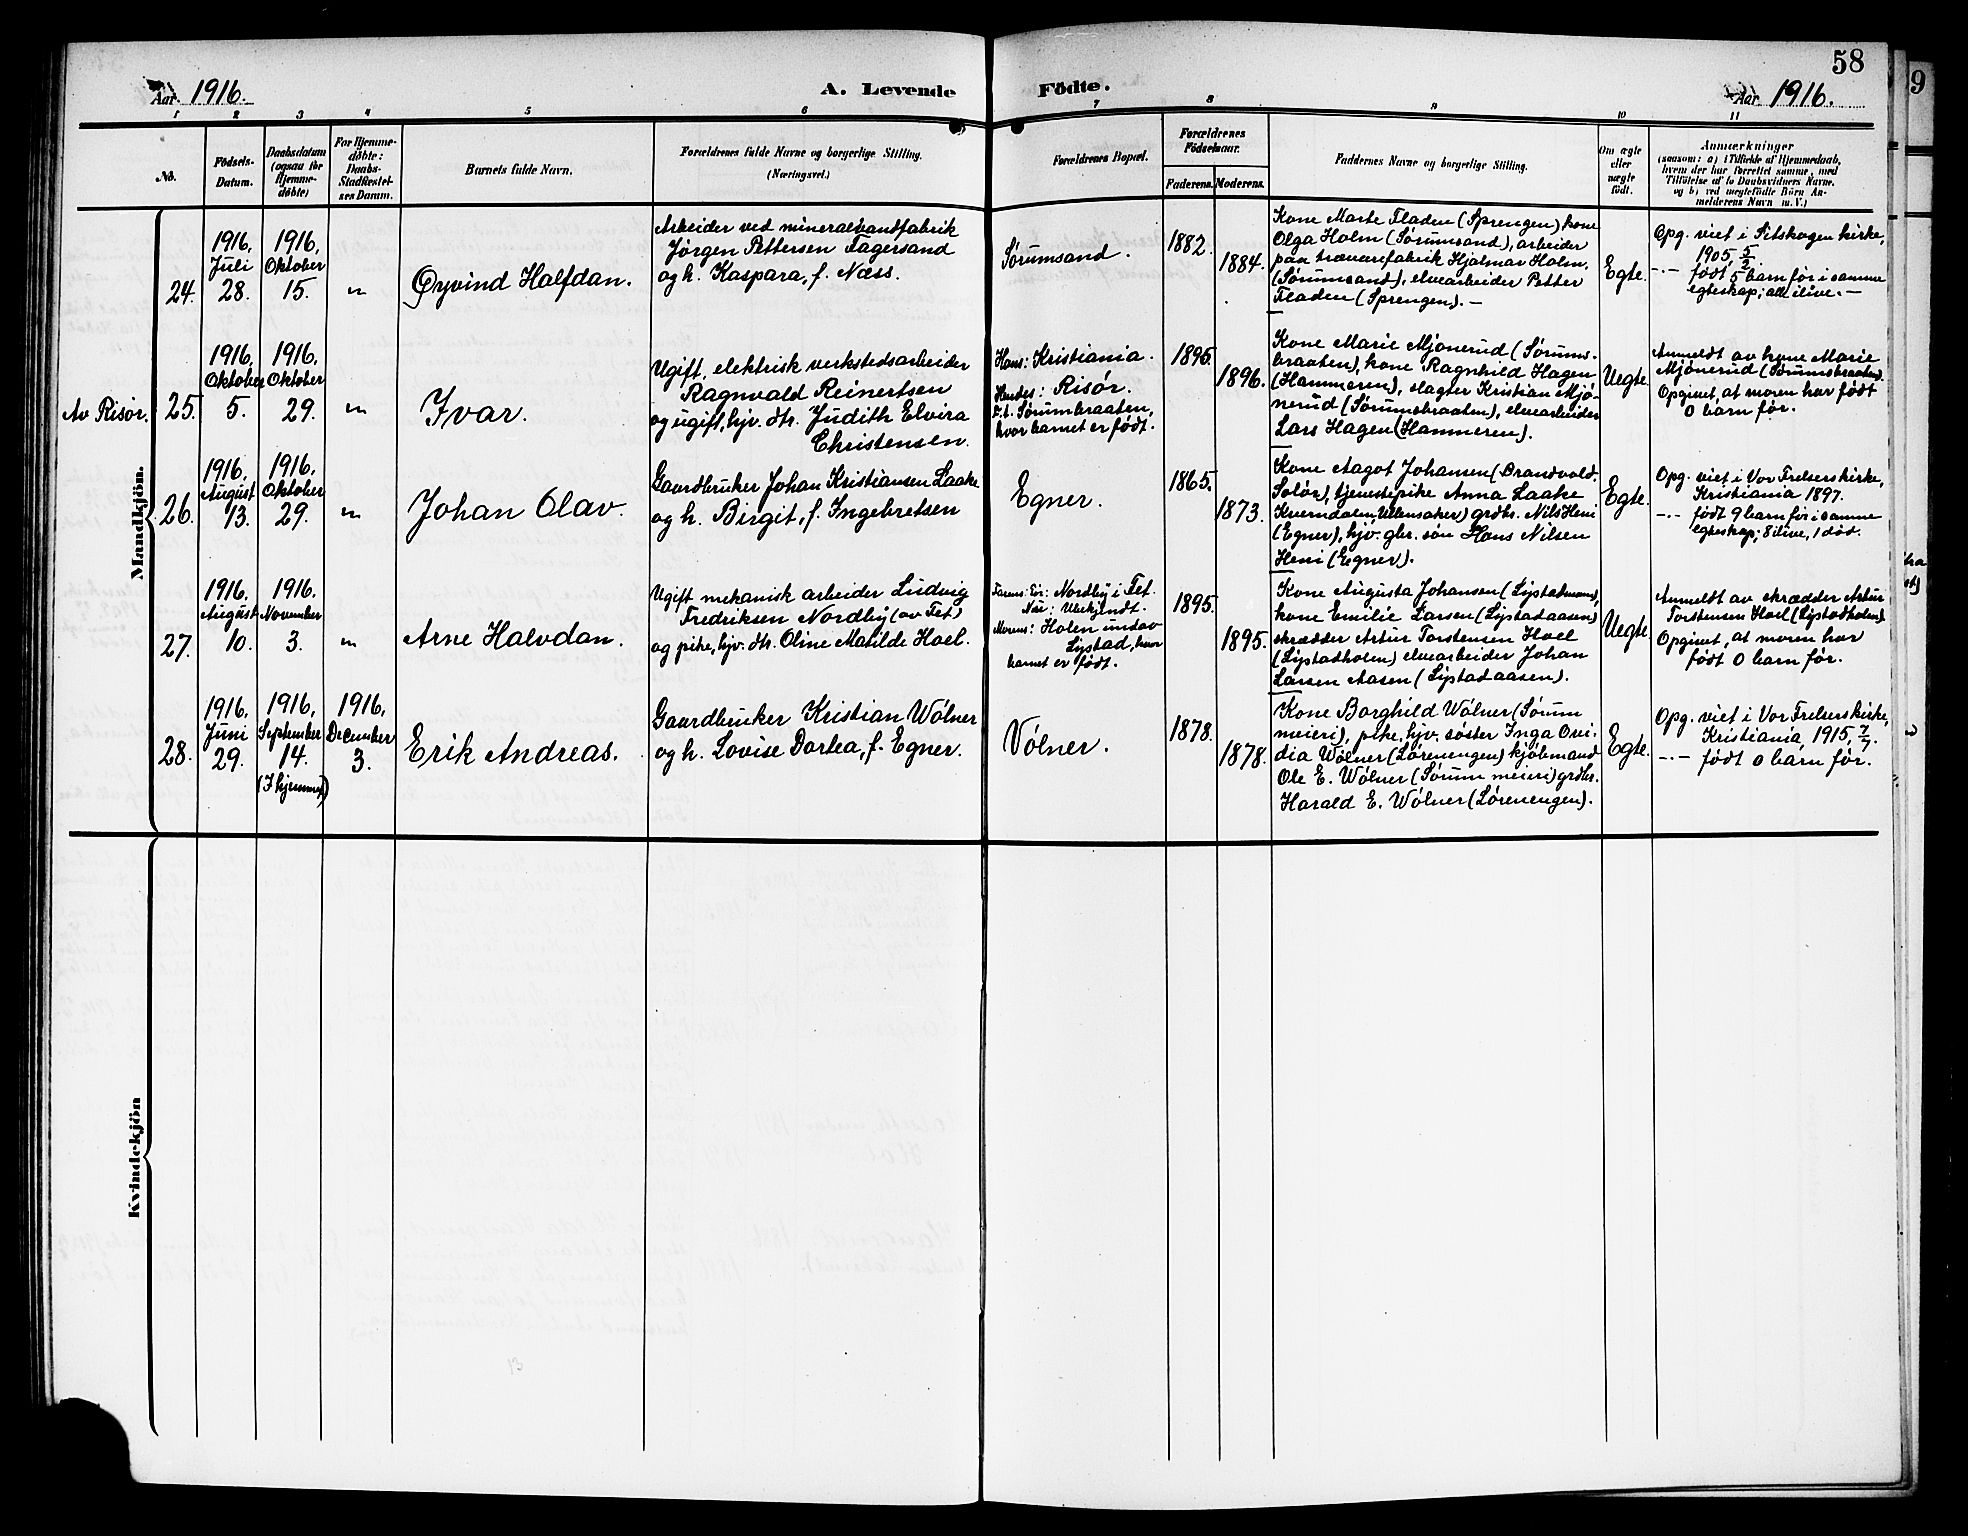 58
Aar 1916.
A. Levende Födte.
Aar 1916.
1 2 3 4 5 6 7 8 9 10 11
No.
Födsels-
Datum.
Daabsdatum
(ogsaa for
Hjemme-
döbte)
For Hjemme-
döbte:
Daabs-
Stadfæstel-
ses Datum.
Barnets fulde Navn.
Forældrenes fulde Navne og borgerlige Stilling.
(Næringsvei.)
Forældrenes Bopæl.
Forældrenes
Födselsaar.
Faderens. Moderens.
Faddernes Navne og borgerlige Stilling.
Om ægte
eller
uægte
födt.
Anmærkninger
(saasom: a) i Tilfælde af Hjemmedaab,
hvem der har forrettet samme, med
Tilföielse af to Daabsvidners Navne,
og b) ved uægtefödte Börn An-
melderens Navn m. V.)
Mandkjön.
24.
1916.
Juli
28.
1916.
Oktober
15.
"
Øyvind Halfdan.
Arbeider ved mineralvandfabrik
Jørgen Pettersen Fagersand
og h. Kaspara, f. Næss.
Sørumsand.
1882.
1884.
Kone Marte Fladen (Sprengen) kone
Olga Holm (Sørumsand), arbeider
paa trævarefabrik Hjalmar Holm,
(Sørumsand), elvearbeider Petter
Fladen (Sprengen). —
Egte.
Opg. viet i Setskogen kirke,
1905, 5/2.
–"– født 5 barn før i samme
egteskap; alle ilive. —
Av Risør.
25.
1916.
Oktober
5.
1916.
Oktober
29.
"
Ivar.
Ugift, elektrisk verkstedsarbeider
Ragnvald Reinertsen
og ugift, hjv. dtr. Judith Elvira
Christensen.
Hans: Kristiania.
Hendes: Risør.
D.t. Sørumbraaten,
hvor barnet er født.
1895.
1896.
Kone Marie Mjønerud (Sørums-
braaten), kone Ragnhild Hagen
(Hammeren), slagter Kristian Mjø-
nerud (Sørumsbraaten), elvearbeider
Lars Hagen (Hammeren).
Uegte.
Anmeldt av kone Marie
Mjønerud (Sørumsbraaten).
Opgivet, at moren har født
0 barn før.
26.
1916.
August
13.
1916.
Oktober
29.
"
Johan Olav.
Gaardbruker Johan Kristiansen Laake
og h. Birgit, f. Ingebretsen
Egner.
1865.
1873.
Kone Aagot Johansen (Brandvold.
Solør), tjenestepike Anna Laake
Kverndalen, Ullensaker) grdbr. Nils Heni
(Egner), hjv. gbr. søn Hans Nilsen
Heni (Egner).
Egte.
Opg. viet i Vor Frelsers kirke,
Kristiania 1897.
–"– født 9 barn før i samme
egteskap; 8 ilive, 1 død.
27.
1916.
August
10.
1916.
November
3.
"
Arne Halvdan.
Ugift mekanisk arbeider Ludvig
Fredriksen Nordby (av Fet)
og pike, hjv. dtr. Oline Matilde Hoel.
Farens: Nordby i Fet.
Nu: Ubekjendt.
Morens: Holen undav
Lystad, hvor
barnet er født.
1895.
1895.
Kone Augusta Johansen (Lystadmoen),
kone Emilie Larsen (Lystadaasen)
skrædder Artur Torstensen Hoel
(Lystadholen) elvearbeider Johan
Larsen Aasen (Lystadaasen).
Uegte.
Anmeldt av skrædder Artur
Torstensen Hoel (Lystadholen)
Opgivet, at moren har
født 0 barn før.
28.
1916.
Juni
29.
1916.
September
14.
(I hjemmet)
1916.
December
3.
Erik Andreas.
Gaardbruker Kristian Wølner
og h. Lovise Dortea, f. Egner.
Vølner.
1878.
1878.
Kone Borghild Wølner (Sørum
meieri), pike, hjv. søster Inga Ovi-
dia Wølner (Lørenengen) kjøbmand
Ole E. Wølner (Sørum meieri) grdbr.
Harald E. Wølner (Lørenengen).
Egte.
Opg. viet i Vor Frelsers kirke,
Kristiania, 1915, 7/7.
–"– født 0 barn før.
Kvindekjön